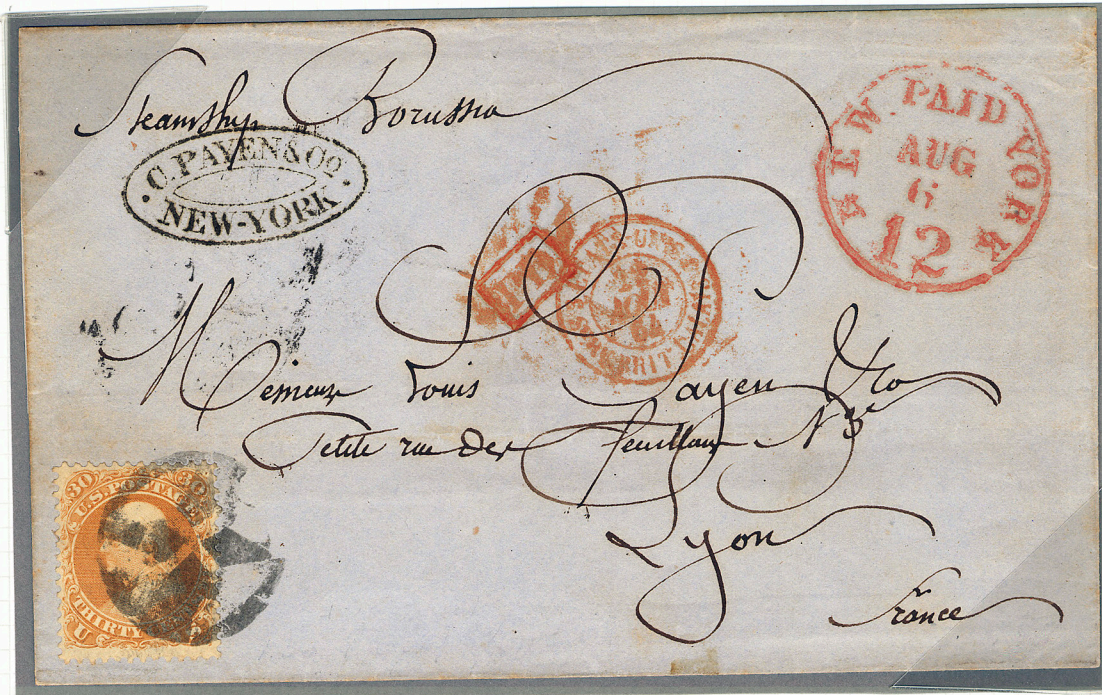 Steamship Borussia
C. PAYEN & Co
NEW-YORK
NEW PAID YORK
AUG
6
12
PD
AOUT
64
Louis Payen & Co
Petite rue des Feuillans N° 3
Lyon
France
30 30
U.S. POSTAGE
THIRTY
U